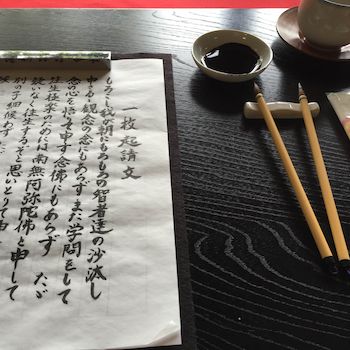 一枚起請文
もろこし我が朝にもろもろの智者達の沙汰し
申さるる観念の念にもあらずまた学問をして
念の心を悟りて申す念佛にもあらず ただ
往生極楽のためには南無阿弥陀佛と申して
疑いなく往生するぞと思いとりて申
別の子細候わず